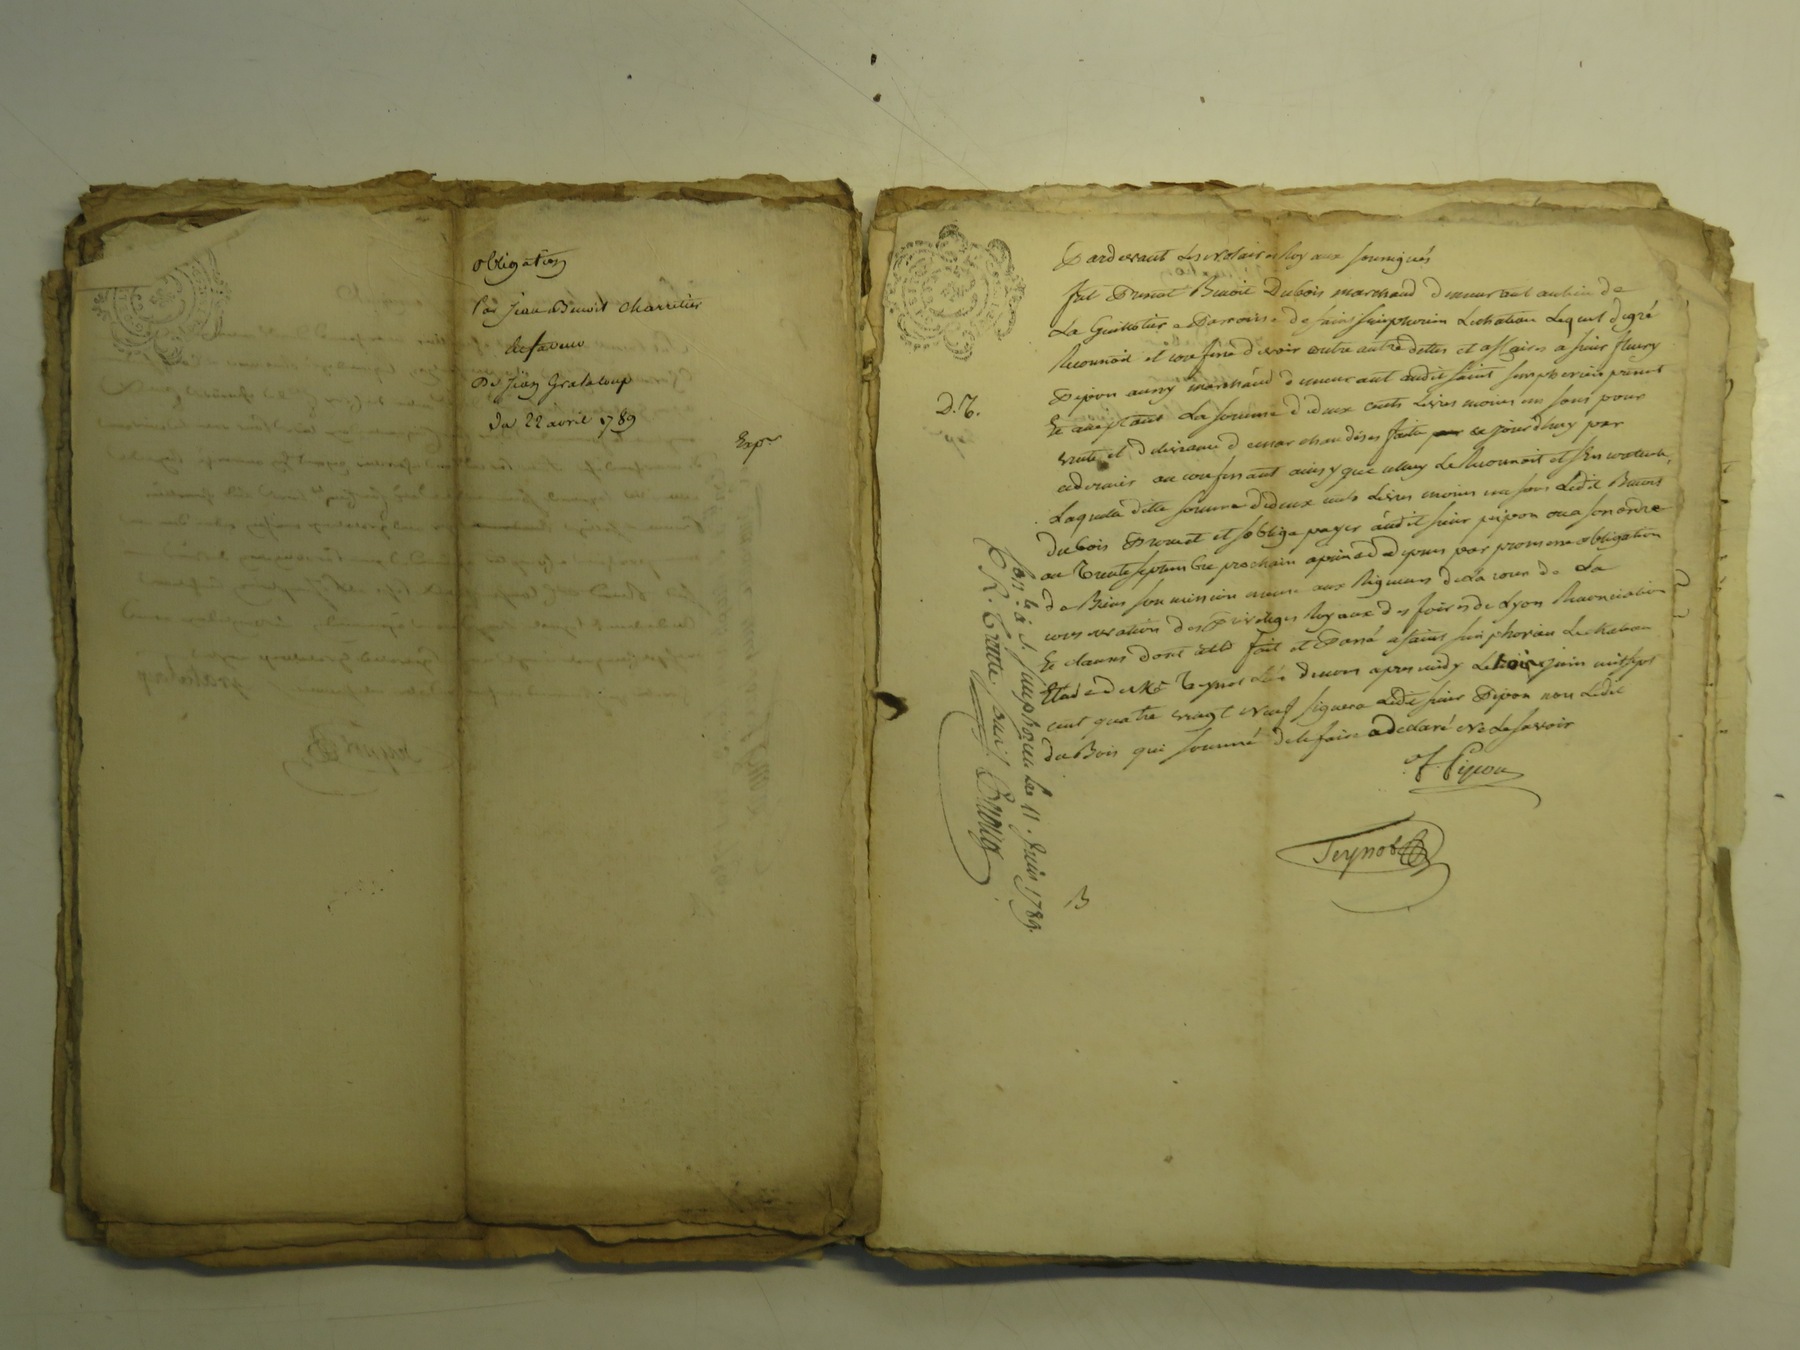 obligation
Par Jean Benoit Charretier
de faveur
De Jean Grataloup
Du 22 avril 1789
Exp.
D. T.
Pardevant Les Notaires Royaux soussignés
fut Present Benoit Dubois marchand demeurant au lieu de
La Guillotiere Parroisse de saint simphorien Lechateau Lequel de gré
Reconnoit et confesse devoir outre autre dettes et affaires a sieur fleury
Pipon aussy marchand demeurant audit saint simphorien present
Et acceptant La somme de deux cents Livres moins un sous pour
vente et delivrance de marchandises faite ce jourdhuy par
ce dernier au confessant ainsy que celuy Le Reconnoit et s'en contente,
Laquelle ditte somme de deux cents Livres moins un sous Ledit Benoit
duBois Promet et s'oblige payer audit sieur pipon ou a son ordre
au Trente septembre prochain a peine de depens par promesse obligation
de Biens soumission aux Rigueurs de La cour de La
conservation des Privileges Royaux des foires de Lyon Renonciation
Et clauses dont acte fait et Passé a saint simphorien Lechateau
Etude de Me Teynot L'un de nous apres midy Le trois juin mil sept
cent quatre vingt neuf signera Ledit sieur Pipon non Ledit
duBois qui sommé de le faire a declaré ne Le savoir
f. Pipon
Teynot
Con. le à S. Simphorien le 11. Juin 1789.
R. Trente sous
B